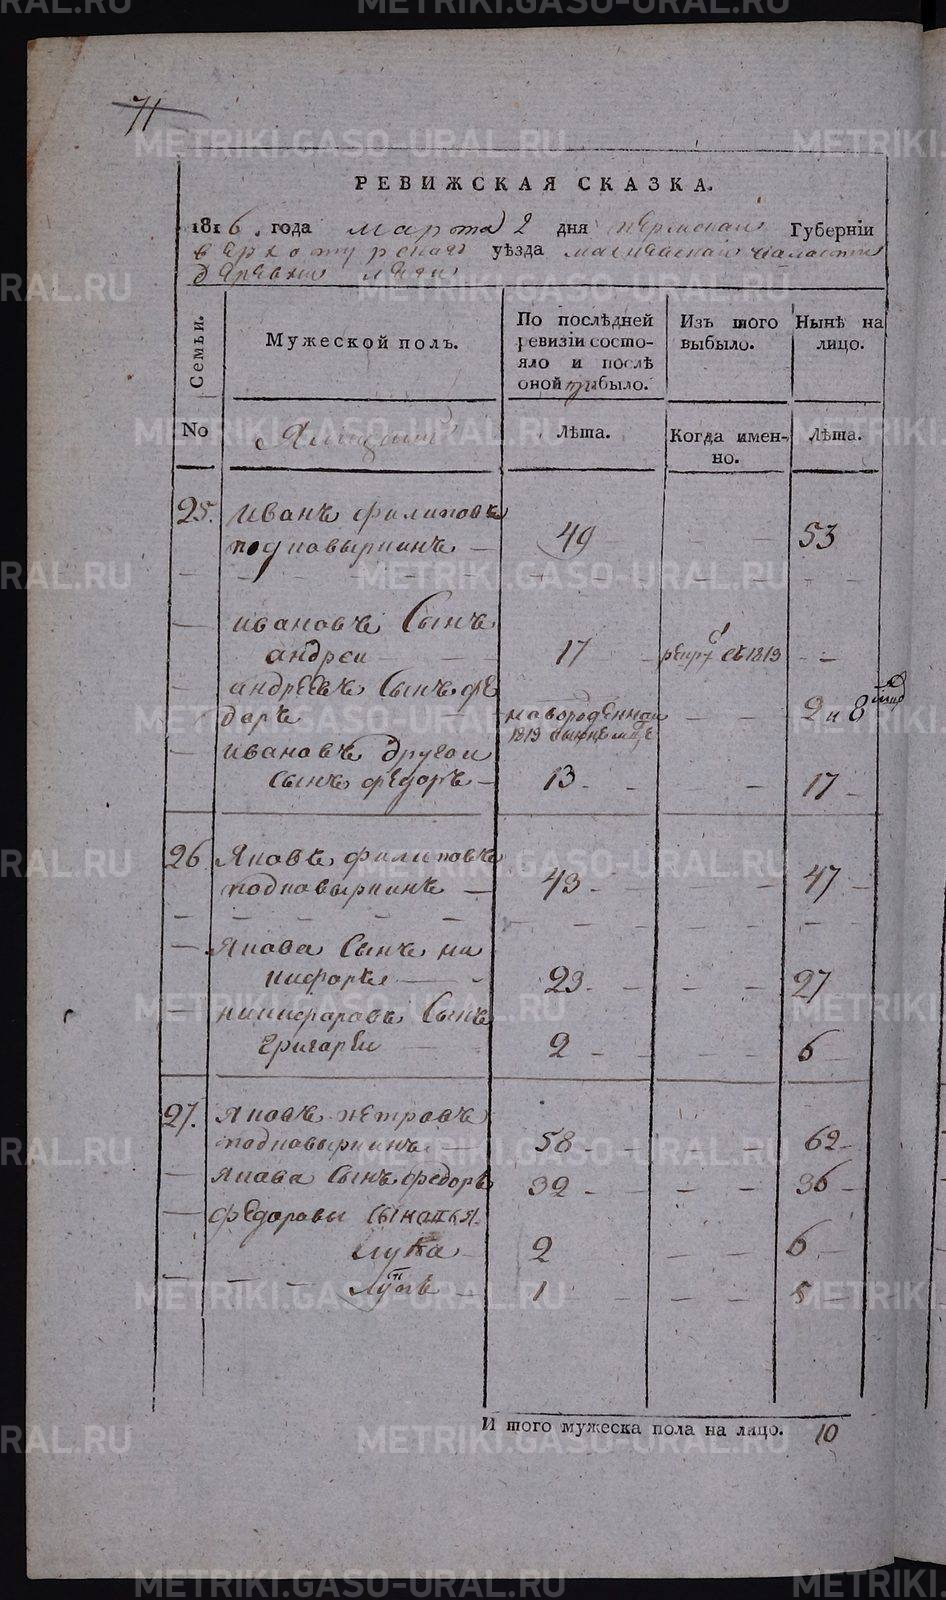 71
РЕВИЖСКАЯ СКАЗКА.
1816 года марта 2 дня пермскай Губерніи
верхотурскаго уѣзда
деревни
Семьи.
Мужеской полъ.
По послѣдней ревизіи состояло и послѣ оной прибыло.
Изъ того выбыло.
Нынѣ на лицо.
No
Лѣта.
Когда именно.
Лѣта.
25. иванъ филиповъ
подковыркинъ 49 53
ивановъ Сынъ
андреи 17 рекру въ 1813
андреевъ Сынъ фе
даръ новорожденнаи 2 и 8
1813
ивановъ другои
Сынъ федоръ 13 17
26 Яковъ филиповъ
подковыркинъ 43 47
якова Сынъ ни
кифоръ 23 27
никифаравъ Сынъ
григареи 2 6
27. яковъ петравъ
подковыркинъ 58 62
якова Сынъ федоръ 32 36
федоравы Сыновья
лука 2 6
1 5
И того мужеска пола на лицо. 10
METRIKI.GASO-URAL.RU